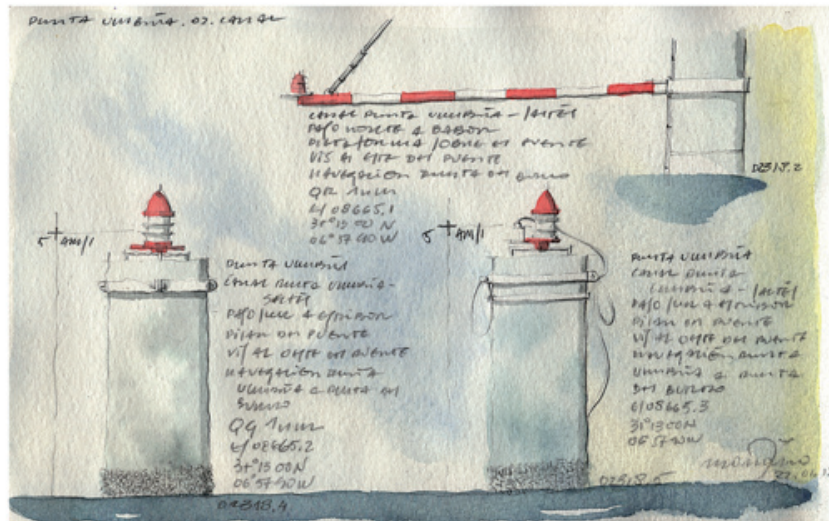 PUNTA UMBRÍA. 02. CANAL
CANAL PUNTA UMBRÍA - SALTÉS
PASO NORTE A BABOR
PLATAFORMA SOBRE EL PUENTE
VIS AL ESTE DEL PUENTE
NAVEGACIÓN PUNTA DEL BURRO
QR 1MM
E/08665.1
37°15 00 N
06°57 40 W
02318.2
5 AM/1
PUNTA UMBRÍA
CANAL PUNTA UMBRÍA -
SALTÉS
PASO SUR A ESTRIBOR
PILAR DEL PUENTE
VIS AL OESTE DEL PUENTE
NAVEGACIÓN PUNTA
UMBRÍA A PUNTA DEL
BURRO
1MM
E/08665.2
37°15 00N
06°57 40W
02318.4
5 AM/1
PUNTA UMBRÍA
CANAL PUNTA
UMBRÍA - SALTÉS
PASO SUR A ESTRIBOR
PILAR DEL PUENTE
VIS AL OESTE DEL PUENTE
NAVEGACIÓN PUNTA
UMBRÍA A PUNTA
DEL BURRO
E/08665.3
37°15 00N
06 57 40W
02318.5